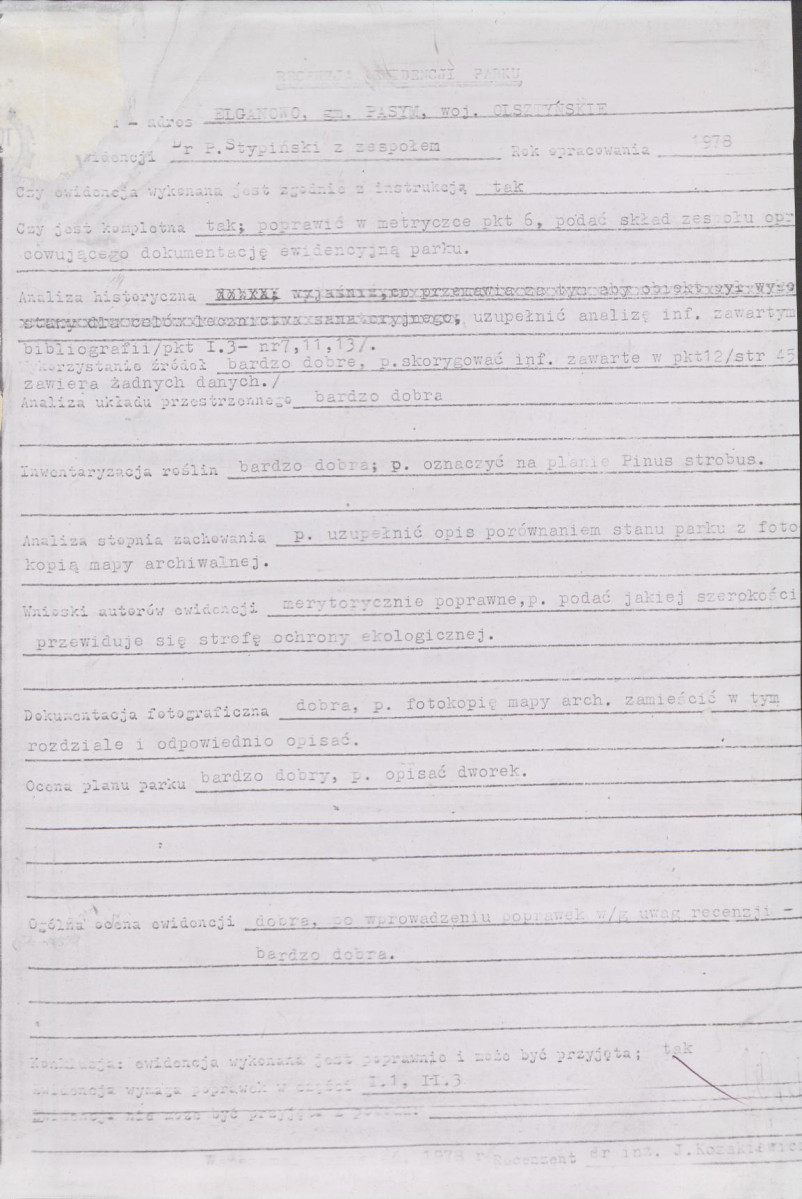 RECENZJA EWIDENCJI PARKU
- adres ELGANOWO, gm. PASYM, woj. OLSZTYŃSKIE
Dr P.Stypiński z zespołem Rok opracowania 1978
Czy ewidencja wykonana jest zgodnie z instrukcją tak
Czy jest kompletna tak; poprawić w metryczce pkt 6, podać skład zespołu opr
cowującego dokumentację ewidencyjną parku.
Analiza historyczna wyjaśnić, co przemawia za tym aby obiekt był wyko
stany dla celów lecznictwa sanatoryjnego; uzupełnić analizę inf. zawartym
bibliografii/pkt I.3- nr7,11,13/.
Wykorzystanie źródeł bardzo dobre, p.skorygować inf. zawarte w pkt12/str 45
zawiera żadnych danych./
Analiza układu przestrzennego bardzo dobra
Inwentaryzacja roślin bardzo dobra; p. oznaczyć na planie Pinus strobus.
Analiza stopnia zachowania p. uzupełnić opis porównaniem stanu parku z foto
kopią mapy archiwalnej.
Wnioski autorów ewidencji merytorycznie poprawne,p. podać jakiej szerokości
przewiduje się strefę ochrony ekologicznej.
Dokumentacja fotograficzna dobra, p. fotokopię mapy arch. zamieścić w tym
rozdziale i odpowiednio opisać.
Ocena planu parku bardzo dobry, p. opisać dworek.
Ogólna ocena ewidencji dobra, po wprowadzeniu poprawek w/g uwag recenzji -
bardzo dobra.
Konkluzja: ewidencja wykonana jest poprawnie i może być przyjęta; tak
ewidencja wymaga poprawek w części I.1, II.3
Ewidencja nie może być przyjęta z powodu:
1978 r Recenzent dr inż. J.Kozakiewicz